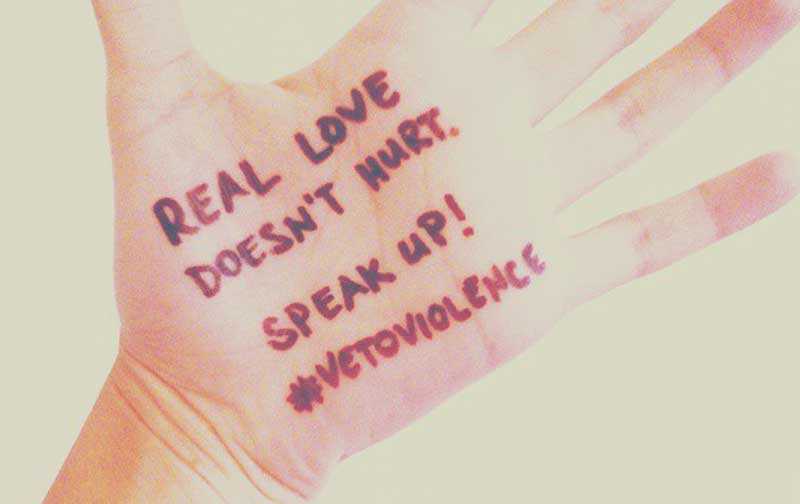 REAL LOVE
DOESN'T HURT.
SPEAK UP!
#VETOVIOLENCE